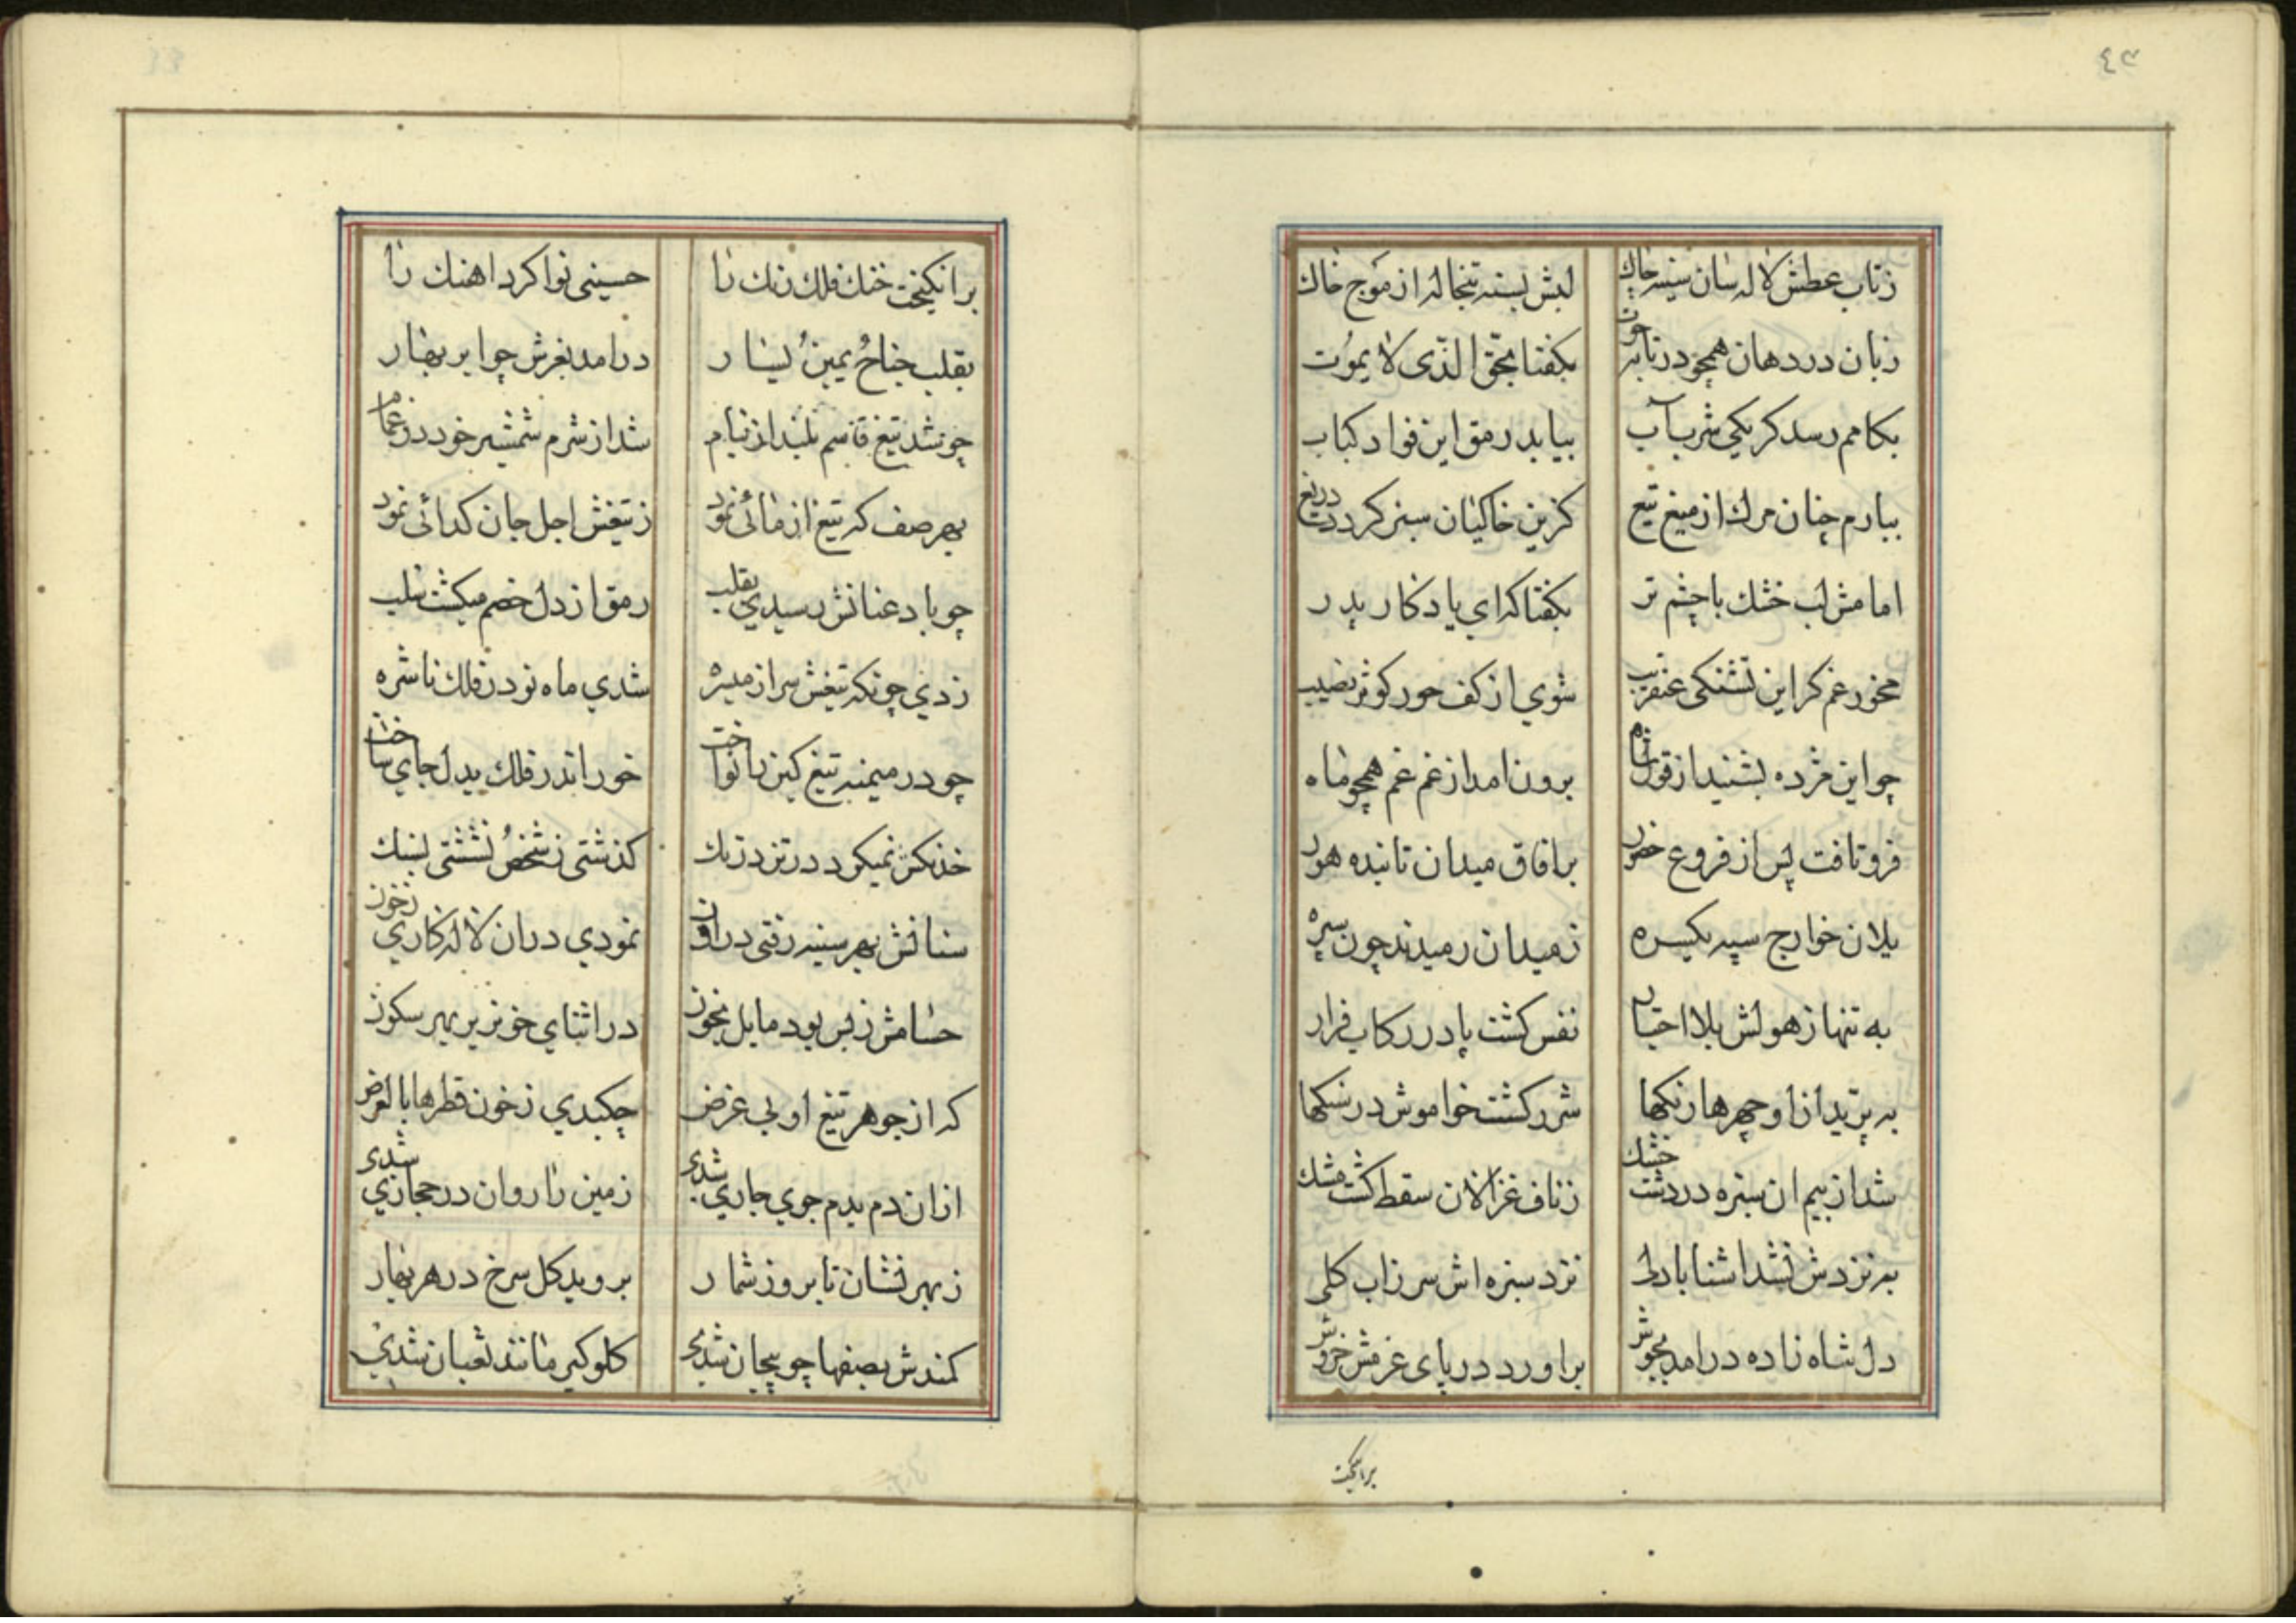 ٤٣
زتاب عطش لاله سان سینه چاك لبش بسته تبخاله از موج خاك
زبان در دهان همچو در تابه حوت بکفتا بحق الذی لا یموت
بکامم رسد کر یکی شربت آب بیابد رمق این فواد کباب
ببارم چنان مرك از میغ تیغ کزین خاکیان سبز کردد دریغ
امامش لب خشك با چشم تر بکفتا که ای یادکار پدر
مخور غم کز این تشنکی عنقریب شوی از کف حور کوثر نصیب
چو این مژده بشنید از قول شاه برون امد از غم غم همچو ماه
فرو تافت پس از فروع حضور بر افاق میدان تابنده هور
یلان خوارج سپه یکسره زمیدان رمیدند چون سیره
به تنها زهولش بلا اختیار نفس کشت پا در رکاب فرار
به پرید از او چهرها رنکها شرر کشت خواموش در سنکها
شد از بیم ان سبزه در دشت خشك زناف غزالان سقط کشت مشك
به نزدش نشد اشنا با دلی نزد سبزه اش سر زاب کلی
دل شاه زاده در امد بجوش براورد دریای عزمش خروش
برانکیخت
برانکیخت خنك فلك زنك را حسینی نوا کرد اهنك را
بقلب جناح یمین یسار در امد بغرش چو ابر بهار
چو شد تیغ قاسم بلند از نیام شد از شرم شمشیر خور در غمام
بهر صف که تیغ ازمائی نمود زتیغش اجل جان کدائی نمود
چو باد عنانش رسیدی بقلب رمق از دل خصم میکشت سلب
زدی چونکه تیغش سر از میسره شدی ماه نو در فلك ناشره
چو در میمنه تیغ کین را نواخت خور اندر فلك بیدل جای ساخت
خدنکش نمیکرد در تن درنك کذشتی زشخص نشستی بسنك
سنانش بهر سینه رفتی درون نمودی دران لاله کاری زخون
حسامش زبس بود مایل بخون در اثنای خونریز بهر سکون
که از جوهر تیغ او بی غرض چکیدی زخون قطرها بالعرض
ازان دم بدم جوی جاری شدی زمین را روان در مجاری شدی
زبهر نشان تا بروز شمار بروید کل سرخ در هر بهار
کمندش بصفها چو پیچان شدی کلوکیر مانند ثعبان شدی